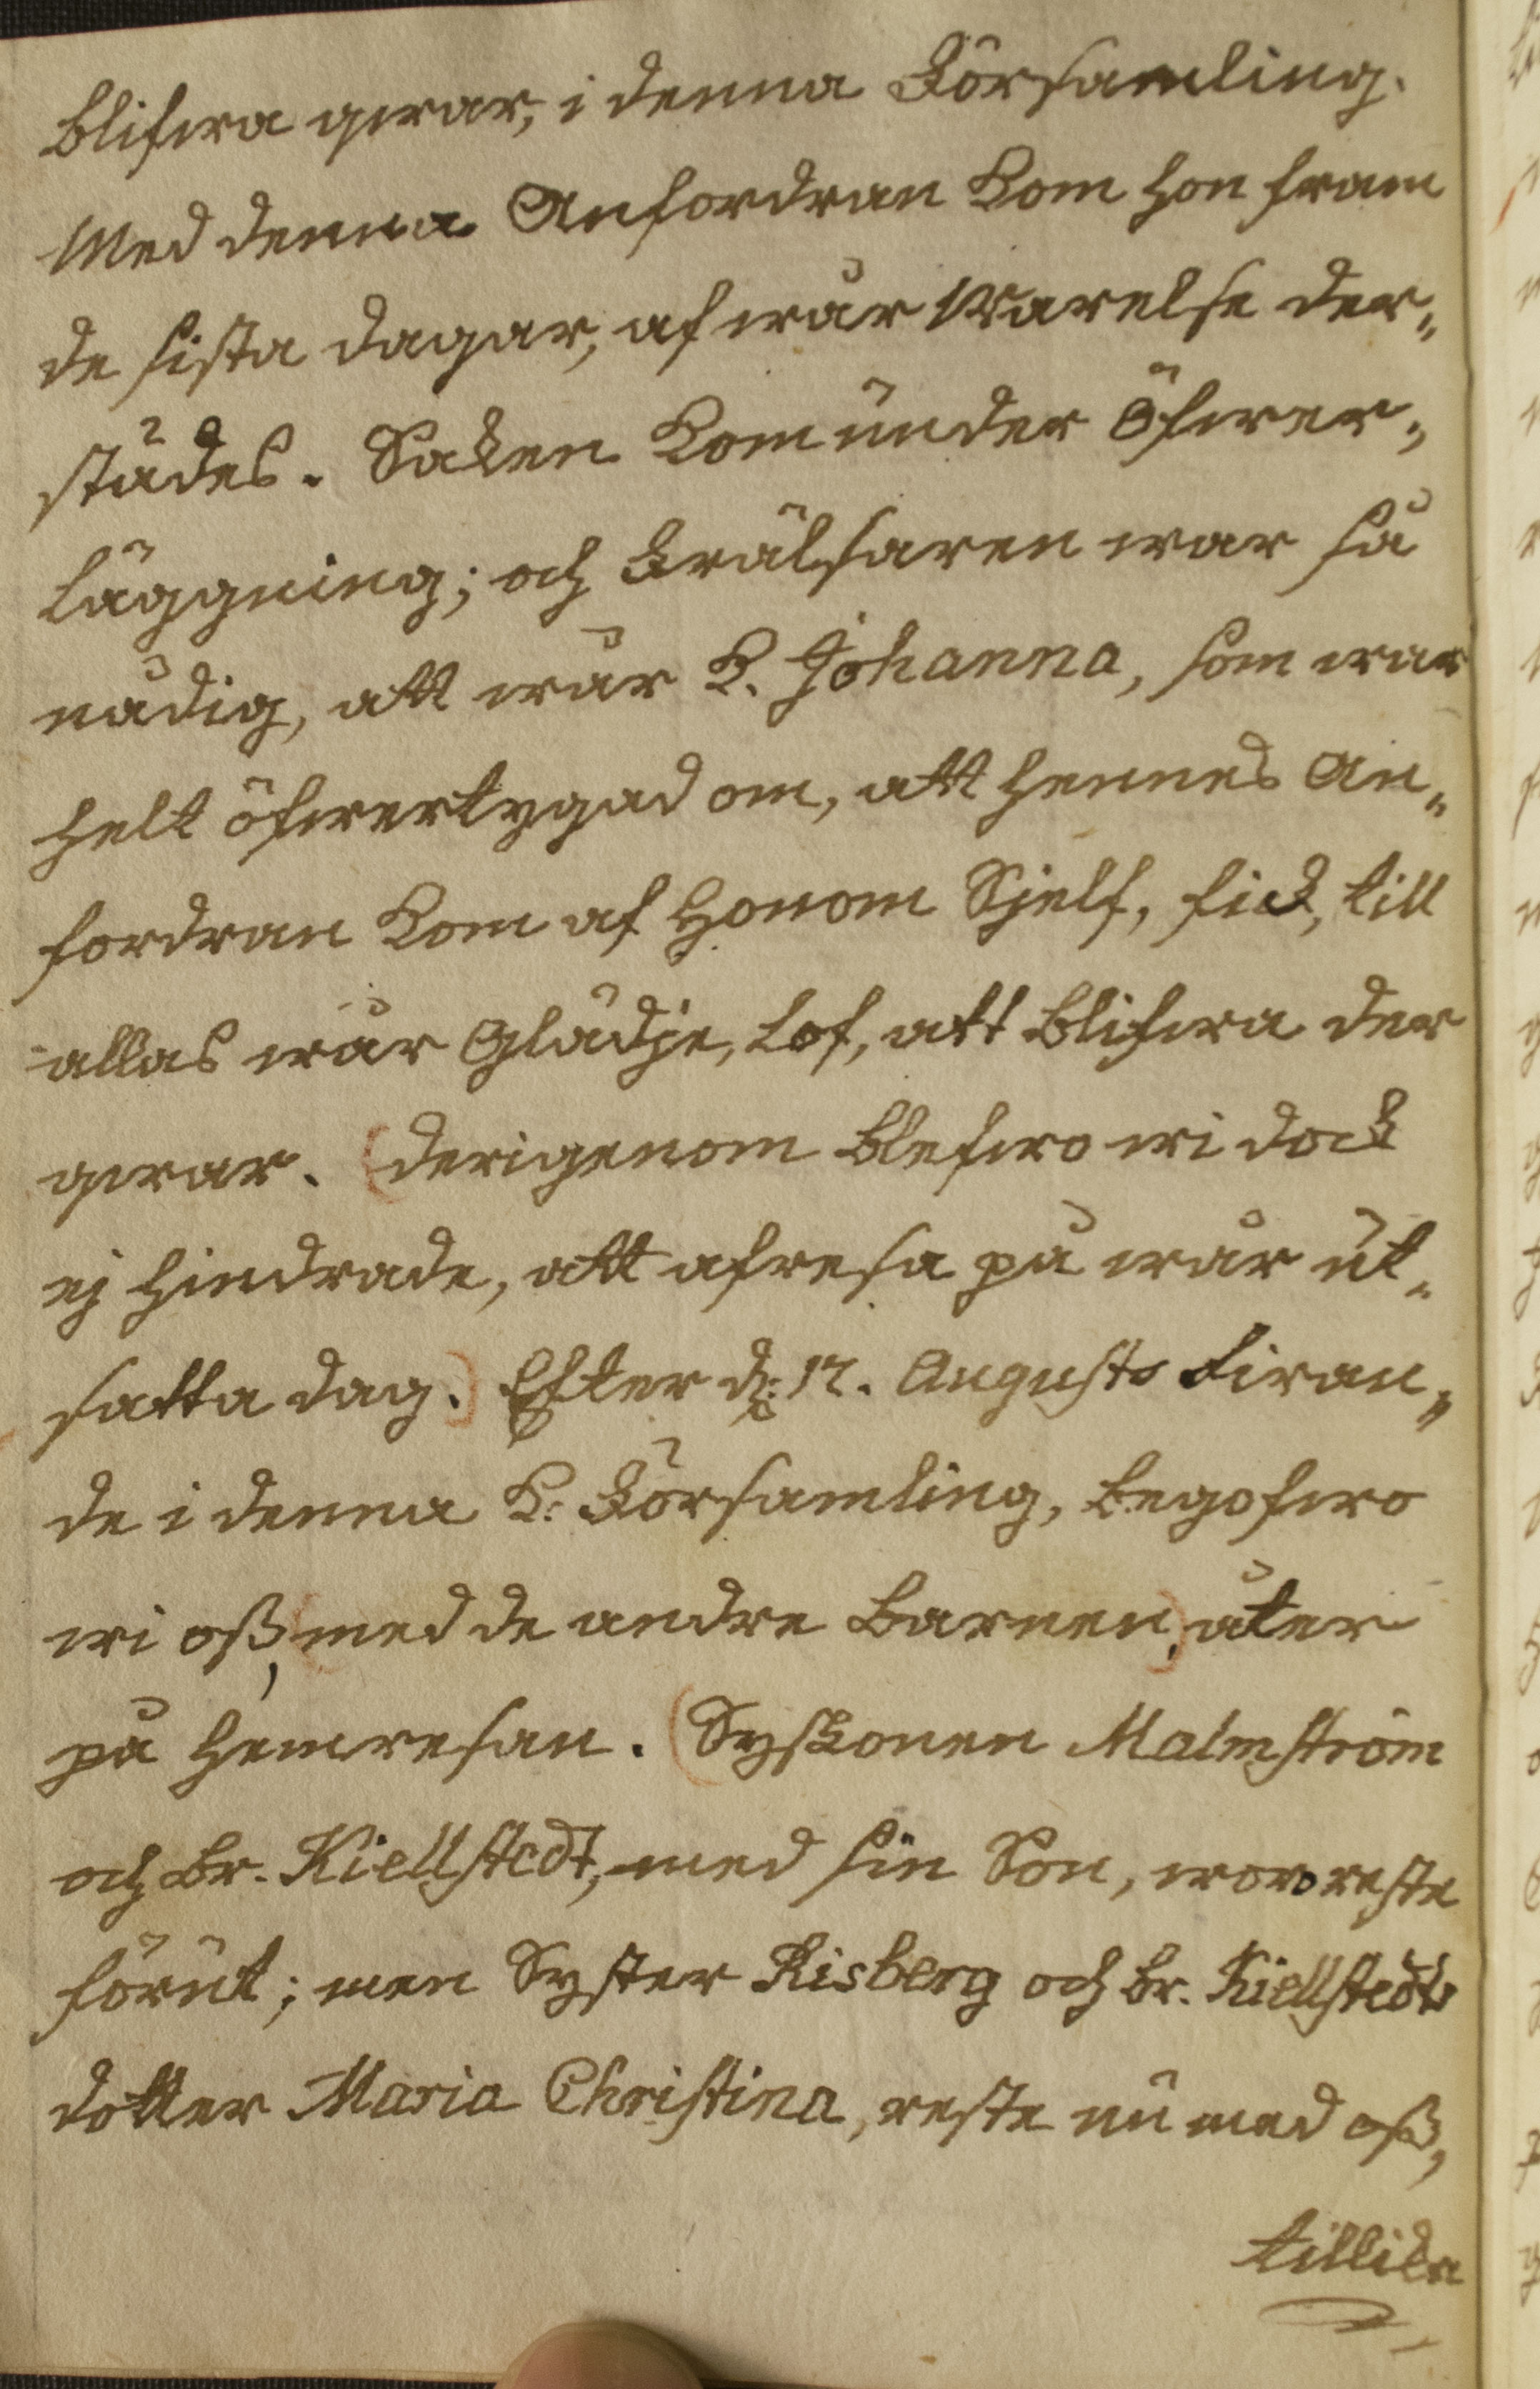 blifwa qwar, i denna Församling.
Med denna Anfordran kom hon fram
de sista dagar, af wår Warelse der„
städes. Saken kom under Öfwer„
läggning; och Frälsaren war så
nådig, att wår K. Johanna, som war
helt öfwertygad om, att hennes An„
fordran kom af Honom Sjelf, fick, till
allas wår Glädje, Lof, att blifwa der
qwar. (Derigenom blefwo wi dock
ej hindrade, att afresa på wår ut„
satta dag.) Efter d: 17. Augusts Firan„
de i denna K. Församling, begofwo
wi oß, (med de andre Barnen,) åter
på hemresan. (Syskonen Malmström
och Br. Kiellstedt, med sin Son, woro reste
förut; men Syster Risberg och Br. Kiellstedts
dotter Maria Christina, reste nu med oß,
tillika